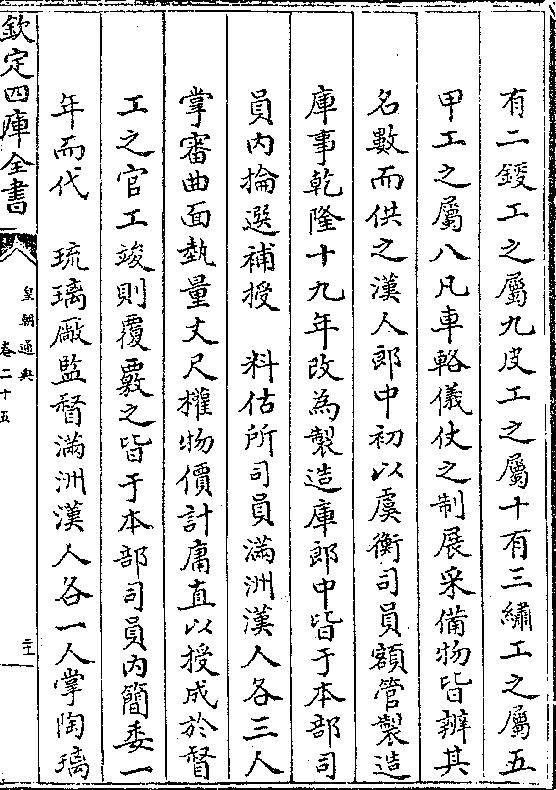 有二鋄工之屬九皮工之屬十有三繡工之屬五
甲工之屬八凡車輅儀仗之制展采備物皆辨其
名數而供之漢人郎中初以虞衡司員額管製造
庫事乾隆十九年改為製造庫郎中皆于本部司
員内掄選補授　料估所司員滿洲漢人各三人
掌審曲面埶量丈尺權物價計庸直以授成於督
工之官工竣則覆覈之皆于本部司員内簡委一
年而代　琉璃廠監督滿洲漢人各一人掌陶璃
欽定四庫全書
皇朝通典
卷二十五